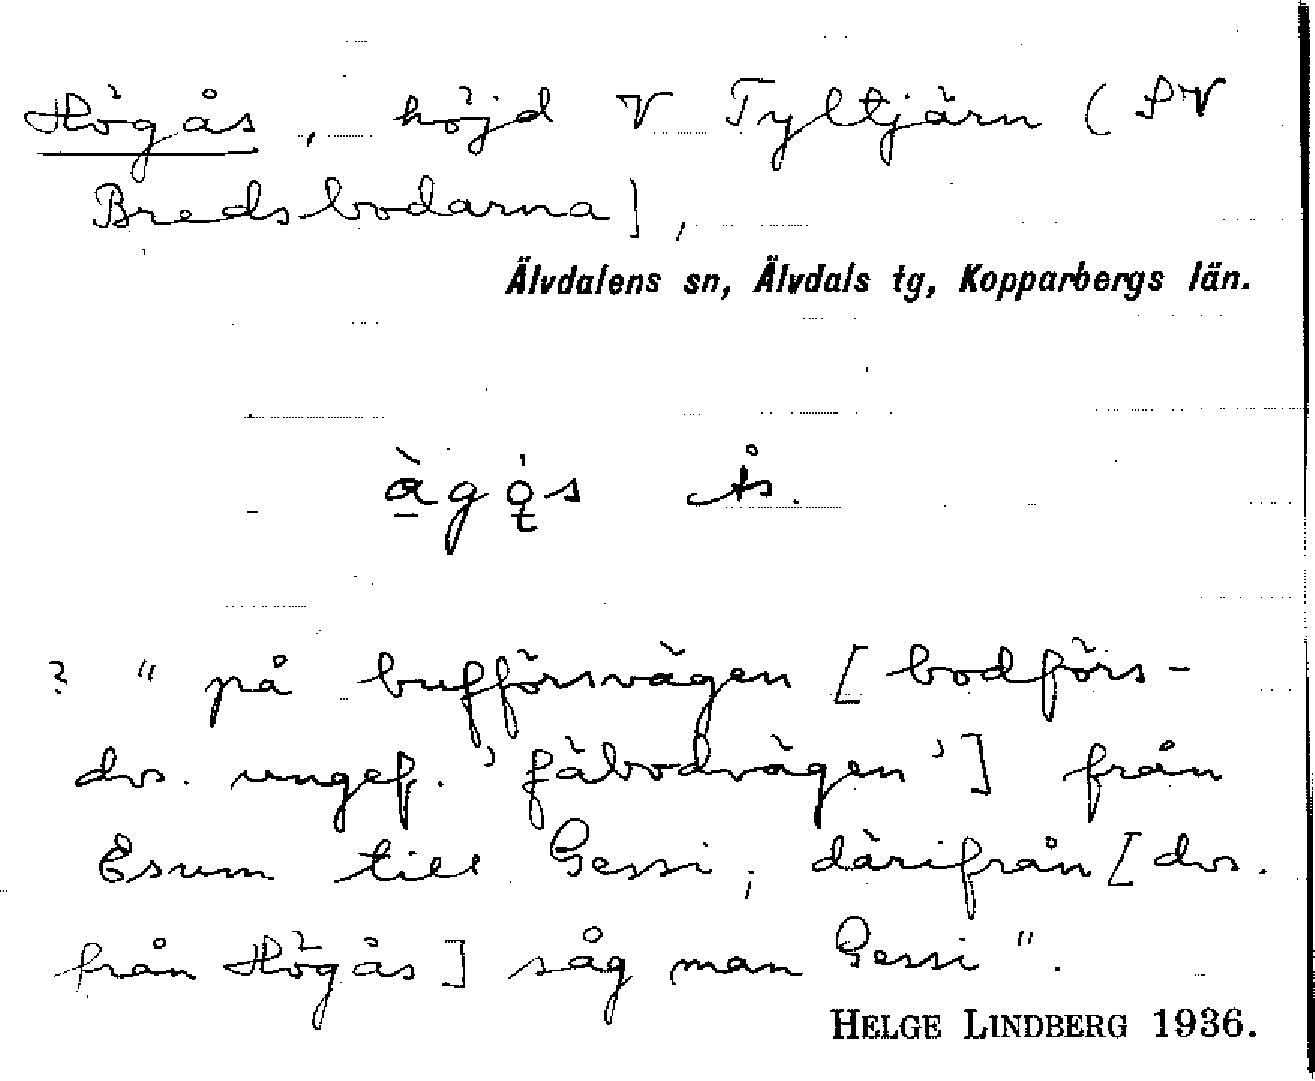 Högås, höjd V Tyltjärn (SV
Bredsbodarna),
Älvdalens sn, Älvdals tg, Kopparbergs län.
Ås.
? "på bufförsvägen [bodförs-
dvs. ungef. 'fäbodvägen'] från
Esum till Gessi; därifrån [dvs.
från Högås] såg man Gessi".
HELGE LINDBERG 1936.